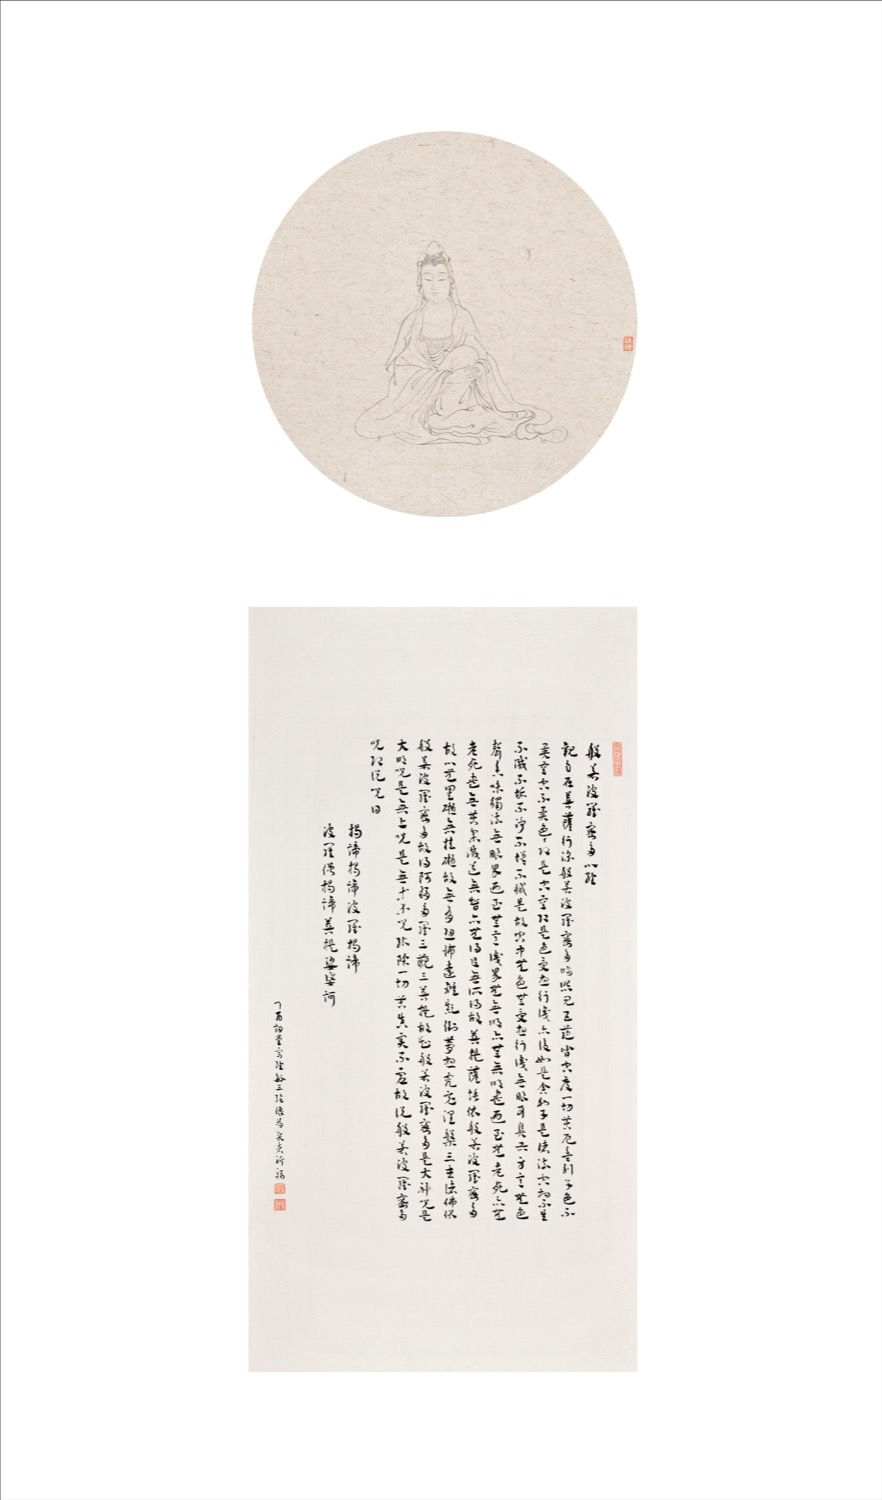 般若波羅蜜多心經
觀自在菩薩行深般若波羅蜜多時照見五蘊皆空度一切苦厄舍利子色不
異空空不異色色即是空空即是色受想行識亦復如是舍利子是諸法空相不生
不滅不垢不淨不增不減是故空中無色無受想行識無眼耳鼻舌身意無色
聲香味觸法無眼界乃至無意識界無無明亦無無明盡乃至無老死亦無
老死盡無苦集滅道無智亦無得以無所得故菩提薩埵依般若波羅蜜多
故心無罣礙無挂礙故無有恐怖遠離顛倒夢想究竟涅槃三世諸佛依
般若波羅蜜多故得阿耨多羅三藐三菩提故知般若波羅蜜多是大神咒是
大明咒是無上咒是無等等咒能除一切苦真實不虛故說般若波羅蜜多
咒即說咒曰
揭諦揭諦波羅揭諦
波羅僧揭諦菩提娑婆訶
丁酉 祈福